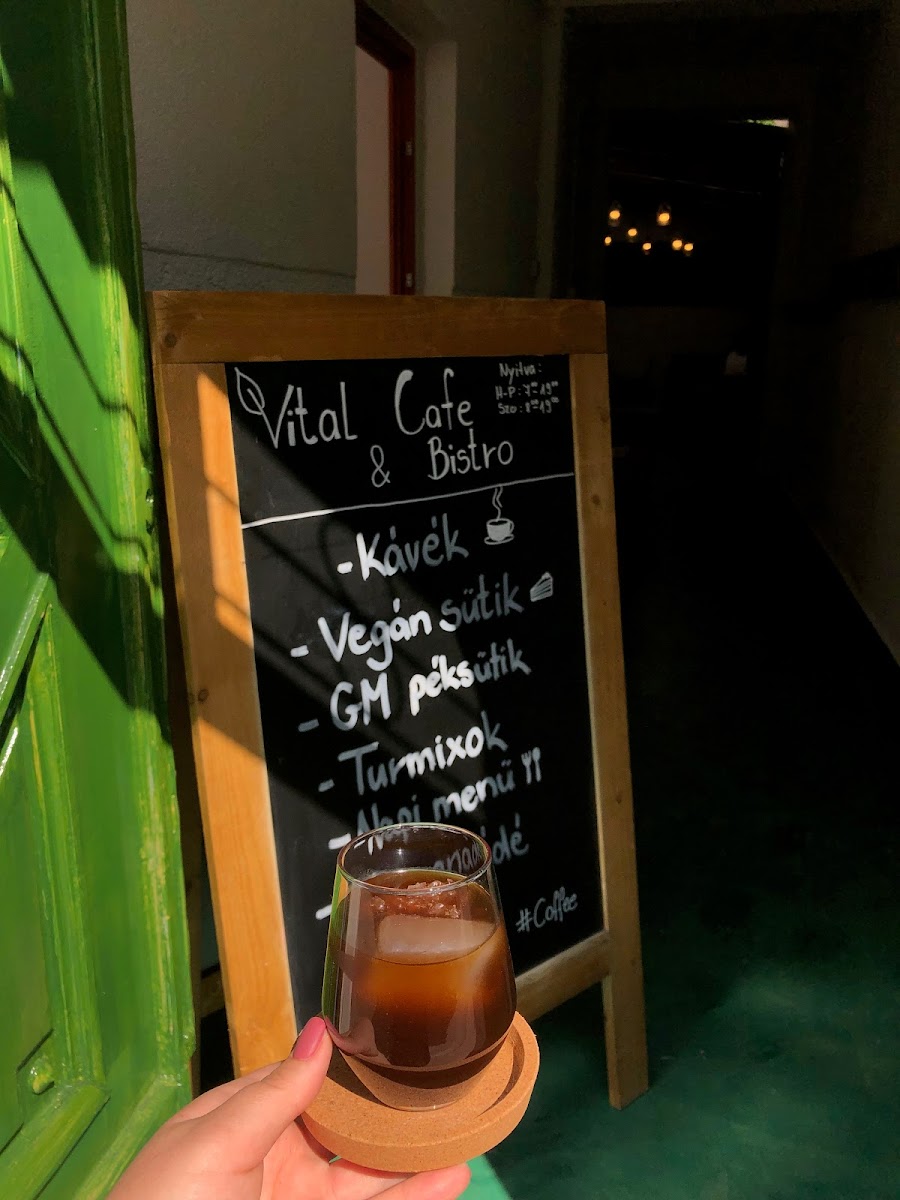 Vital Cafe
& Bistro
Nyitva:
H-P: 7⁰⁰-19⁰⁰
Szo: 8⁰⁰-19⁰⁰
- Kávék
- Vegán sütik
- GM péksütik
- Turmixok
- Napi menü
#Coffee